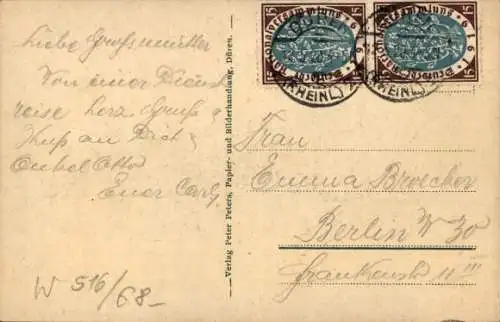 Liebe Großmutter
Von einer Dienst
reise herz. Gruß &
Kuß an Dich &
Onkel Otto
Euer Carl
W 516/68-
Verlag Peter Peters, Papier- und Bilderhandlung, Düren.
Deutsche Nationalversammlung 1919
15 15
Deutsche Nationalversammlung 1919
15 15
DÜREN
(RHEINL)
(RHEINL)
Frau
Emma Broecker
Berlin W 30
Frankenstr 11 III